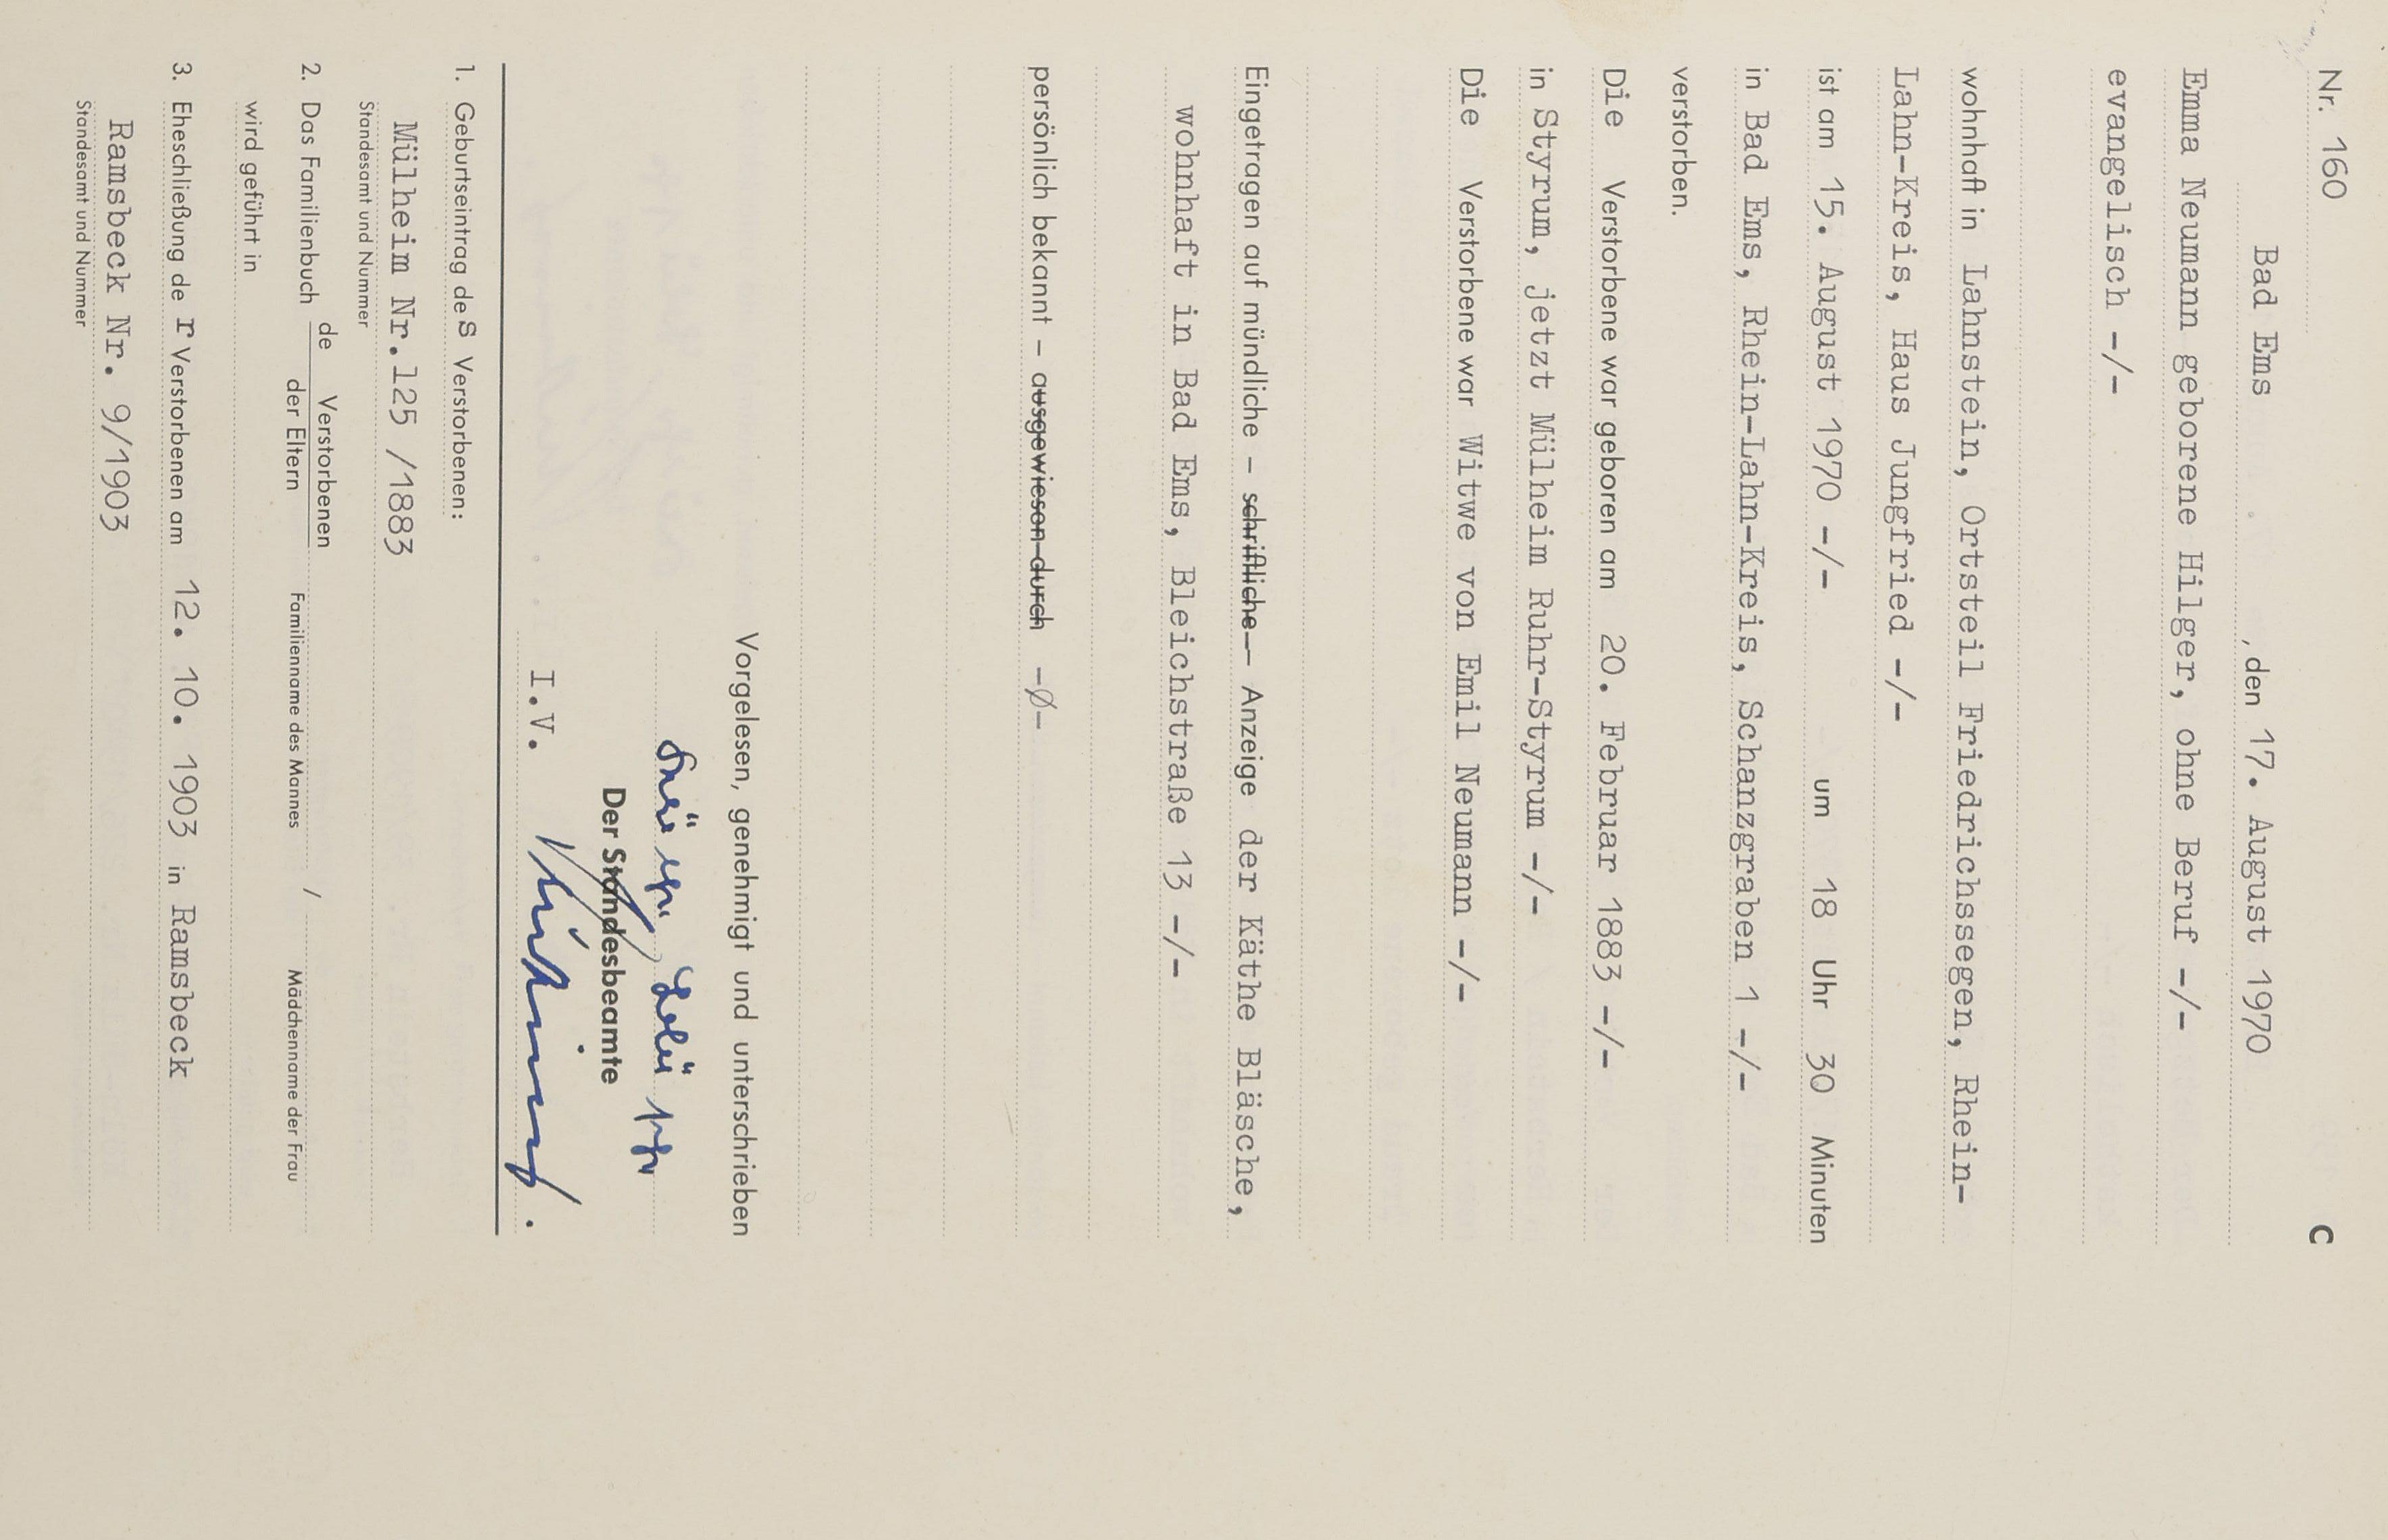 Nr. 160
C
Bad Ems , den 17. August 1970
Emma Neumann geborene Hilger, ohne Beruf -/-
evangelisch -/-
wohnhaft in Lahnstein, Ortsteil Friedrichssegen, Rhein-
Lahn-Kreis, Haus Jungfried -/-
ist am 15. August 1970 -/- um 18 Uhr 30 Minuten
in Bad Ems, Rhein-Lahn-Kreis, Schanzgraben 1 -/-
verstorben.
Die Verstorbene war geboren am 20. Februar 1883 -/-
in Styrum, jetzt Mülheim Ruhr-Styrum -/-
Die Verstorbene war Witwe von Emil Neumann -/-
Eingetragen auf mündliche - schriftliche - Anzeige der Käthe Bläsche,
wohnhaft in Bad Ems, Bleichstraße 13 -/-
persönlich bekannt - ausgewiesen durch -Ø-
Vorgelesen, genehmigt und unterschrieben
Der Standesbeamte
I.V.
1. Geburtseintrag des Verstorbenen:
Mülheim Nr.125 /1883
Standesamt und Nummer
2. Das Familienbuch de Verstorbenen
der Eltern
/
Familienname des Mannes Mädchenname der Frau
wird geführt in
3. Eheschließung der Verstorbenen am 12. 10. 1903 in Ramsbeck
Ramsbeck Nr. 9/1903
Standesamt und Nummer